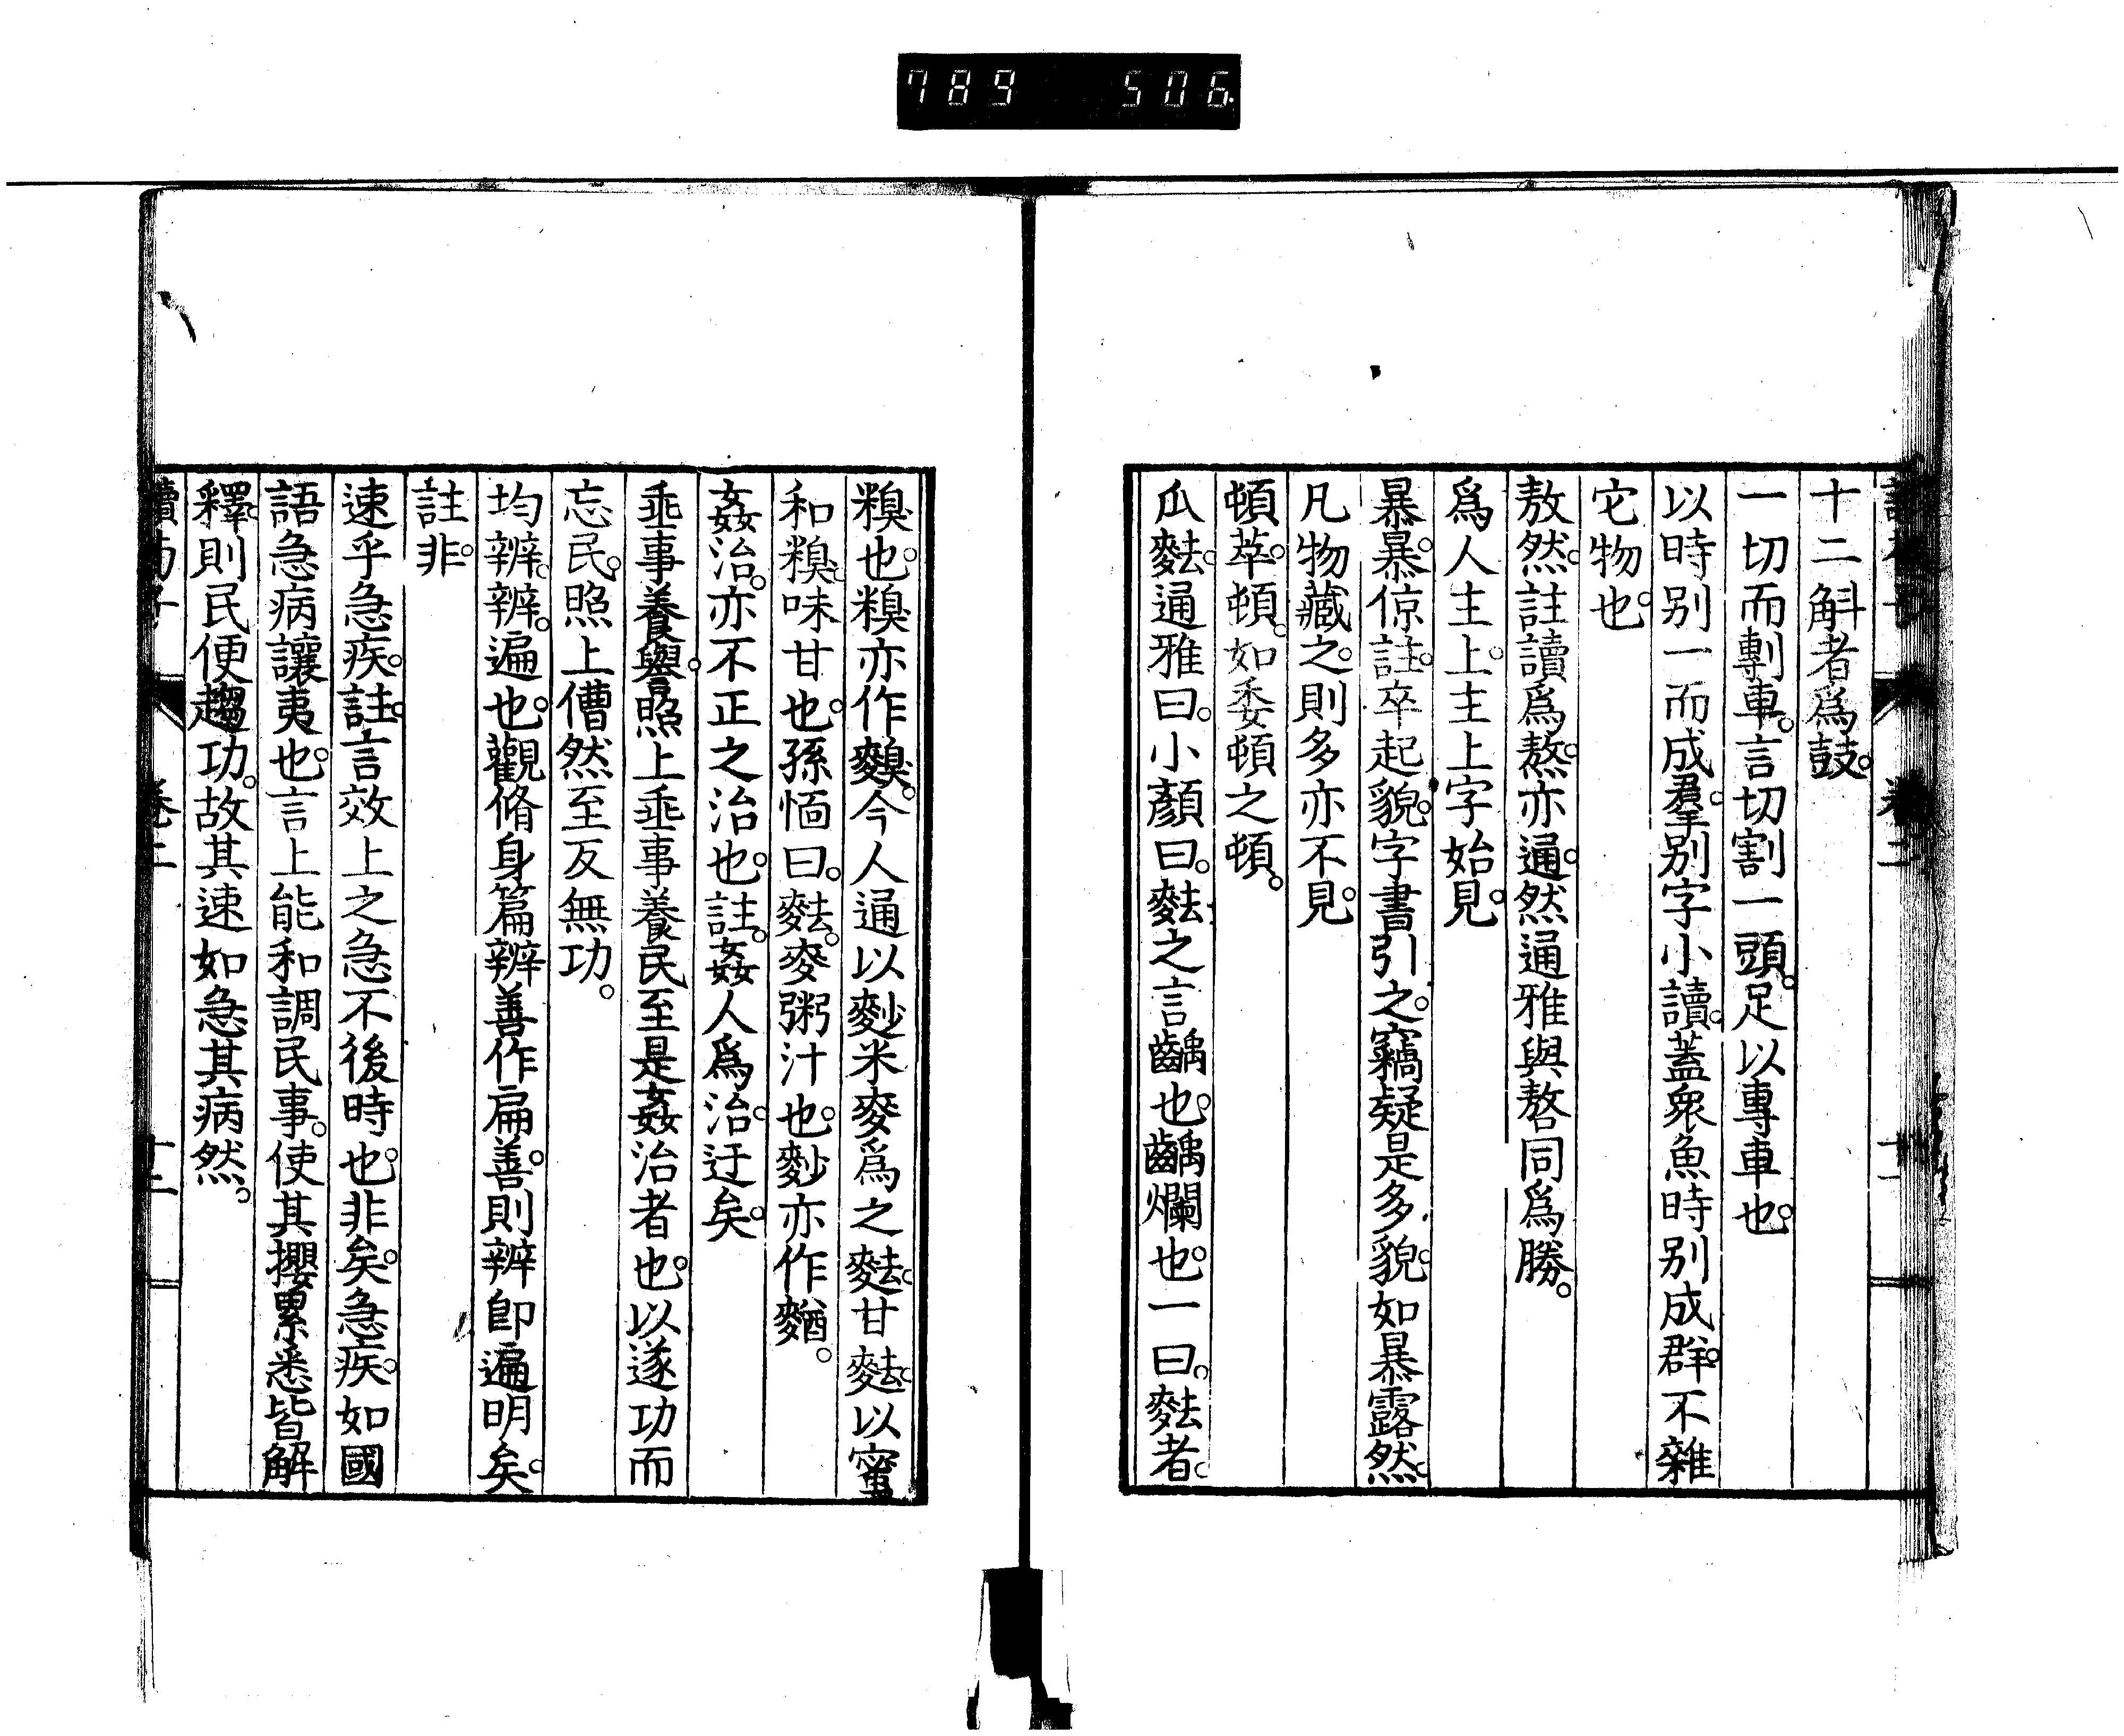 789 506
十二斛者爲鼓。
一切而剸車。言切割一頭。足以專車也。
以時别一而成羣。别字小讀。蓋衆魚時别成群。不雜
它物也。
敖然。註讀爲熬。亦通。然通雅與嶅同爲勝。
爲人主上。主上字始見。
暴暴。倞註。卒起貌。字書引之。竊疑是多貌。如暴露然。
凡物藏之。則多亦不見。
頓萃。頓。如委頓之頓。
瓜麮。通雅曰。小顏曰。麮之言齲也。齲爛也。一曰。麮者。
糗也。糗亦作𪍿。今人通以麨米麥爲之麮。甘麮。以蜜
和糗。味甘也。孫愐曰。麮。麥粥汁也。麨亦作䴬。
姦治。亦不正之治也。註。姦人爲治。迂矣。
垂事養譽。照上垂事養民至是姦治者也。以遂功而
忘民。照上傮然至反無功。
均辨。辨。遍也。觀脩身篇辨善作扁善。則辨卽遍明矣。
註非。
速乎急疾。註。言效上之急不後時也。非矣。急疾。如國
語急病讓夷也。言上能和調民事。使其攖累悉皆解
釋。則民便趨功。故其速如急其病然。
卷二